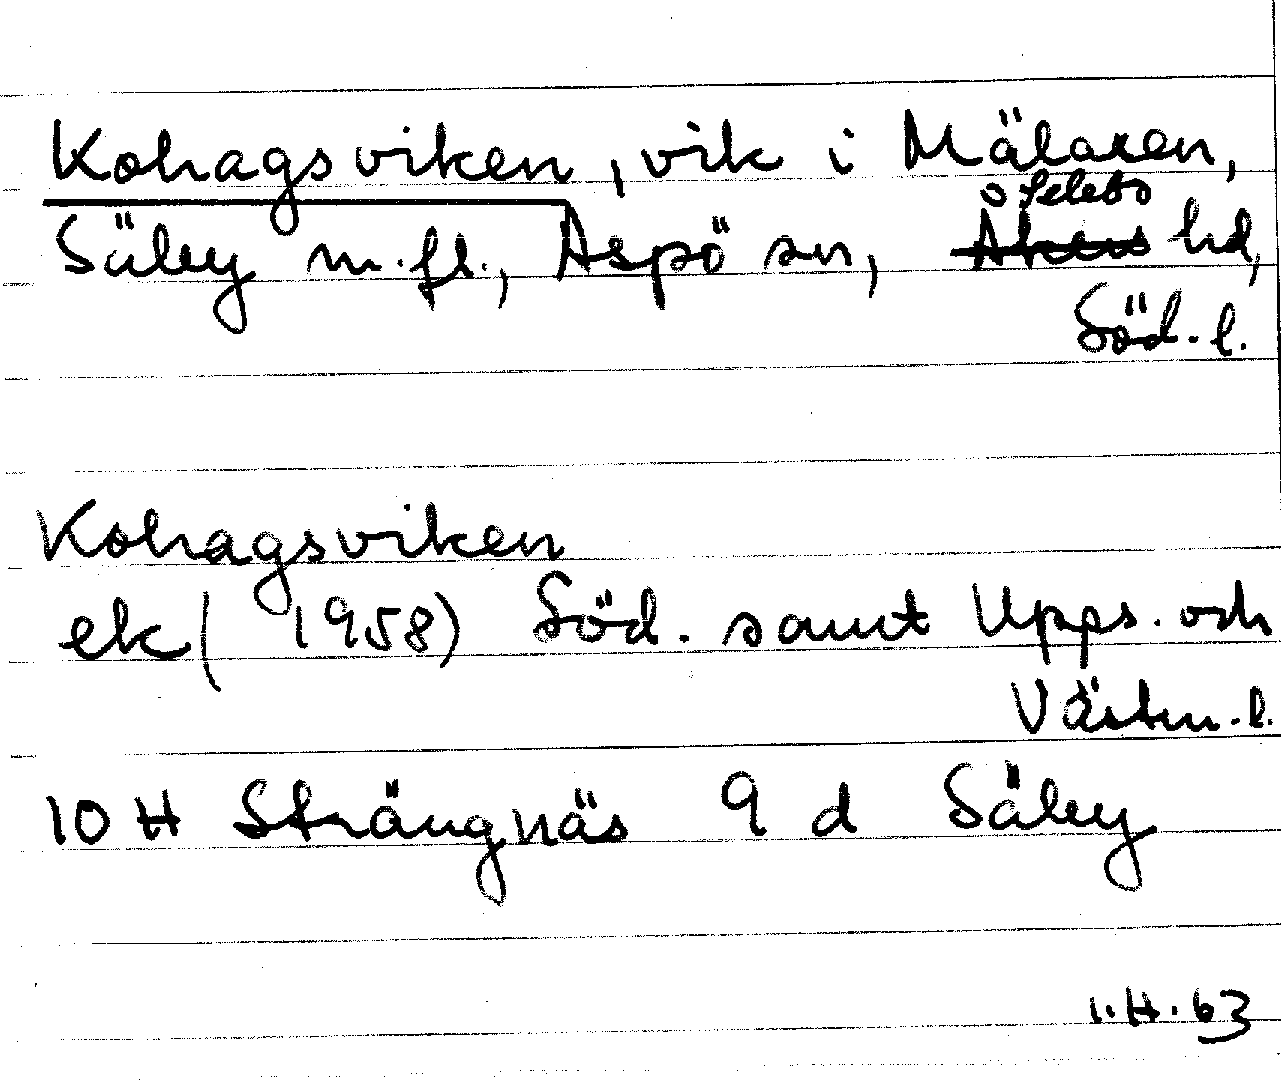 Kohagsviken, vik i Mälaren,
Selebo
Säby m.fl., Aspö sn, Åkers hd,
Söd. l.
Kohagsviken
ek (1958) Söd. samt Upps. och
Västm. l.
10 H Strängnäs 9 d Säby
I. H. 63